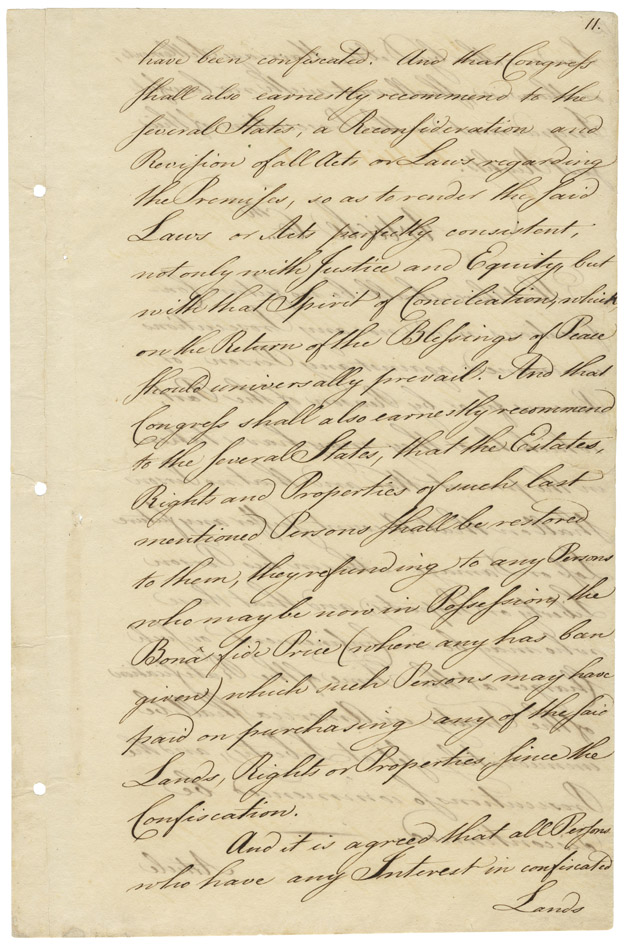 11.
have been confiscated. And that Congress
shall also earnestly recommend to the
several States, a Reconsideration and
Revision of all Acts or Laws regarding
the Premises, so as to render the said
Laws or Acts perfectly consistent,
not only with Justice and Equity, but
with that Spirit of Conciliation, which
on the Return of the Blessings of Peace
should universally prevail. And that
Congress shall also earnestly recommend
to the several States, that the Estates,
Rights and Properties of such last
mentioned Persons shall be restored
to them, they refunding to any Persons
who may be now in Possession, the
Bonâ fide Price (where any has been
given) which such Persons may have
paid on purchasing any of the said
Lands, Rights or Properties, since the
Confiscation.
And it is agreed that all Persons
who have any Interest in confiscated
Lands